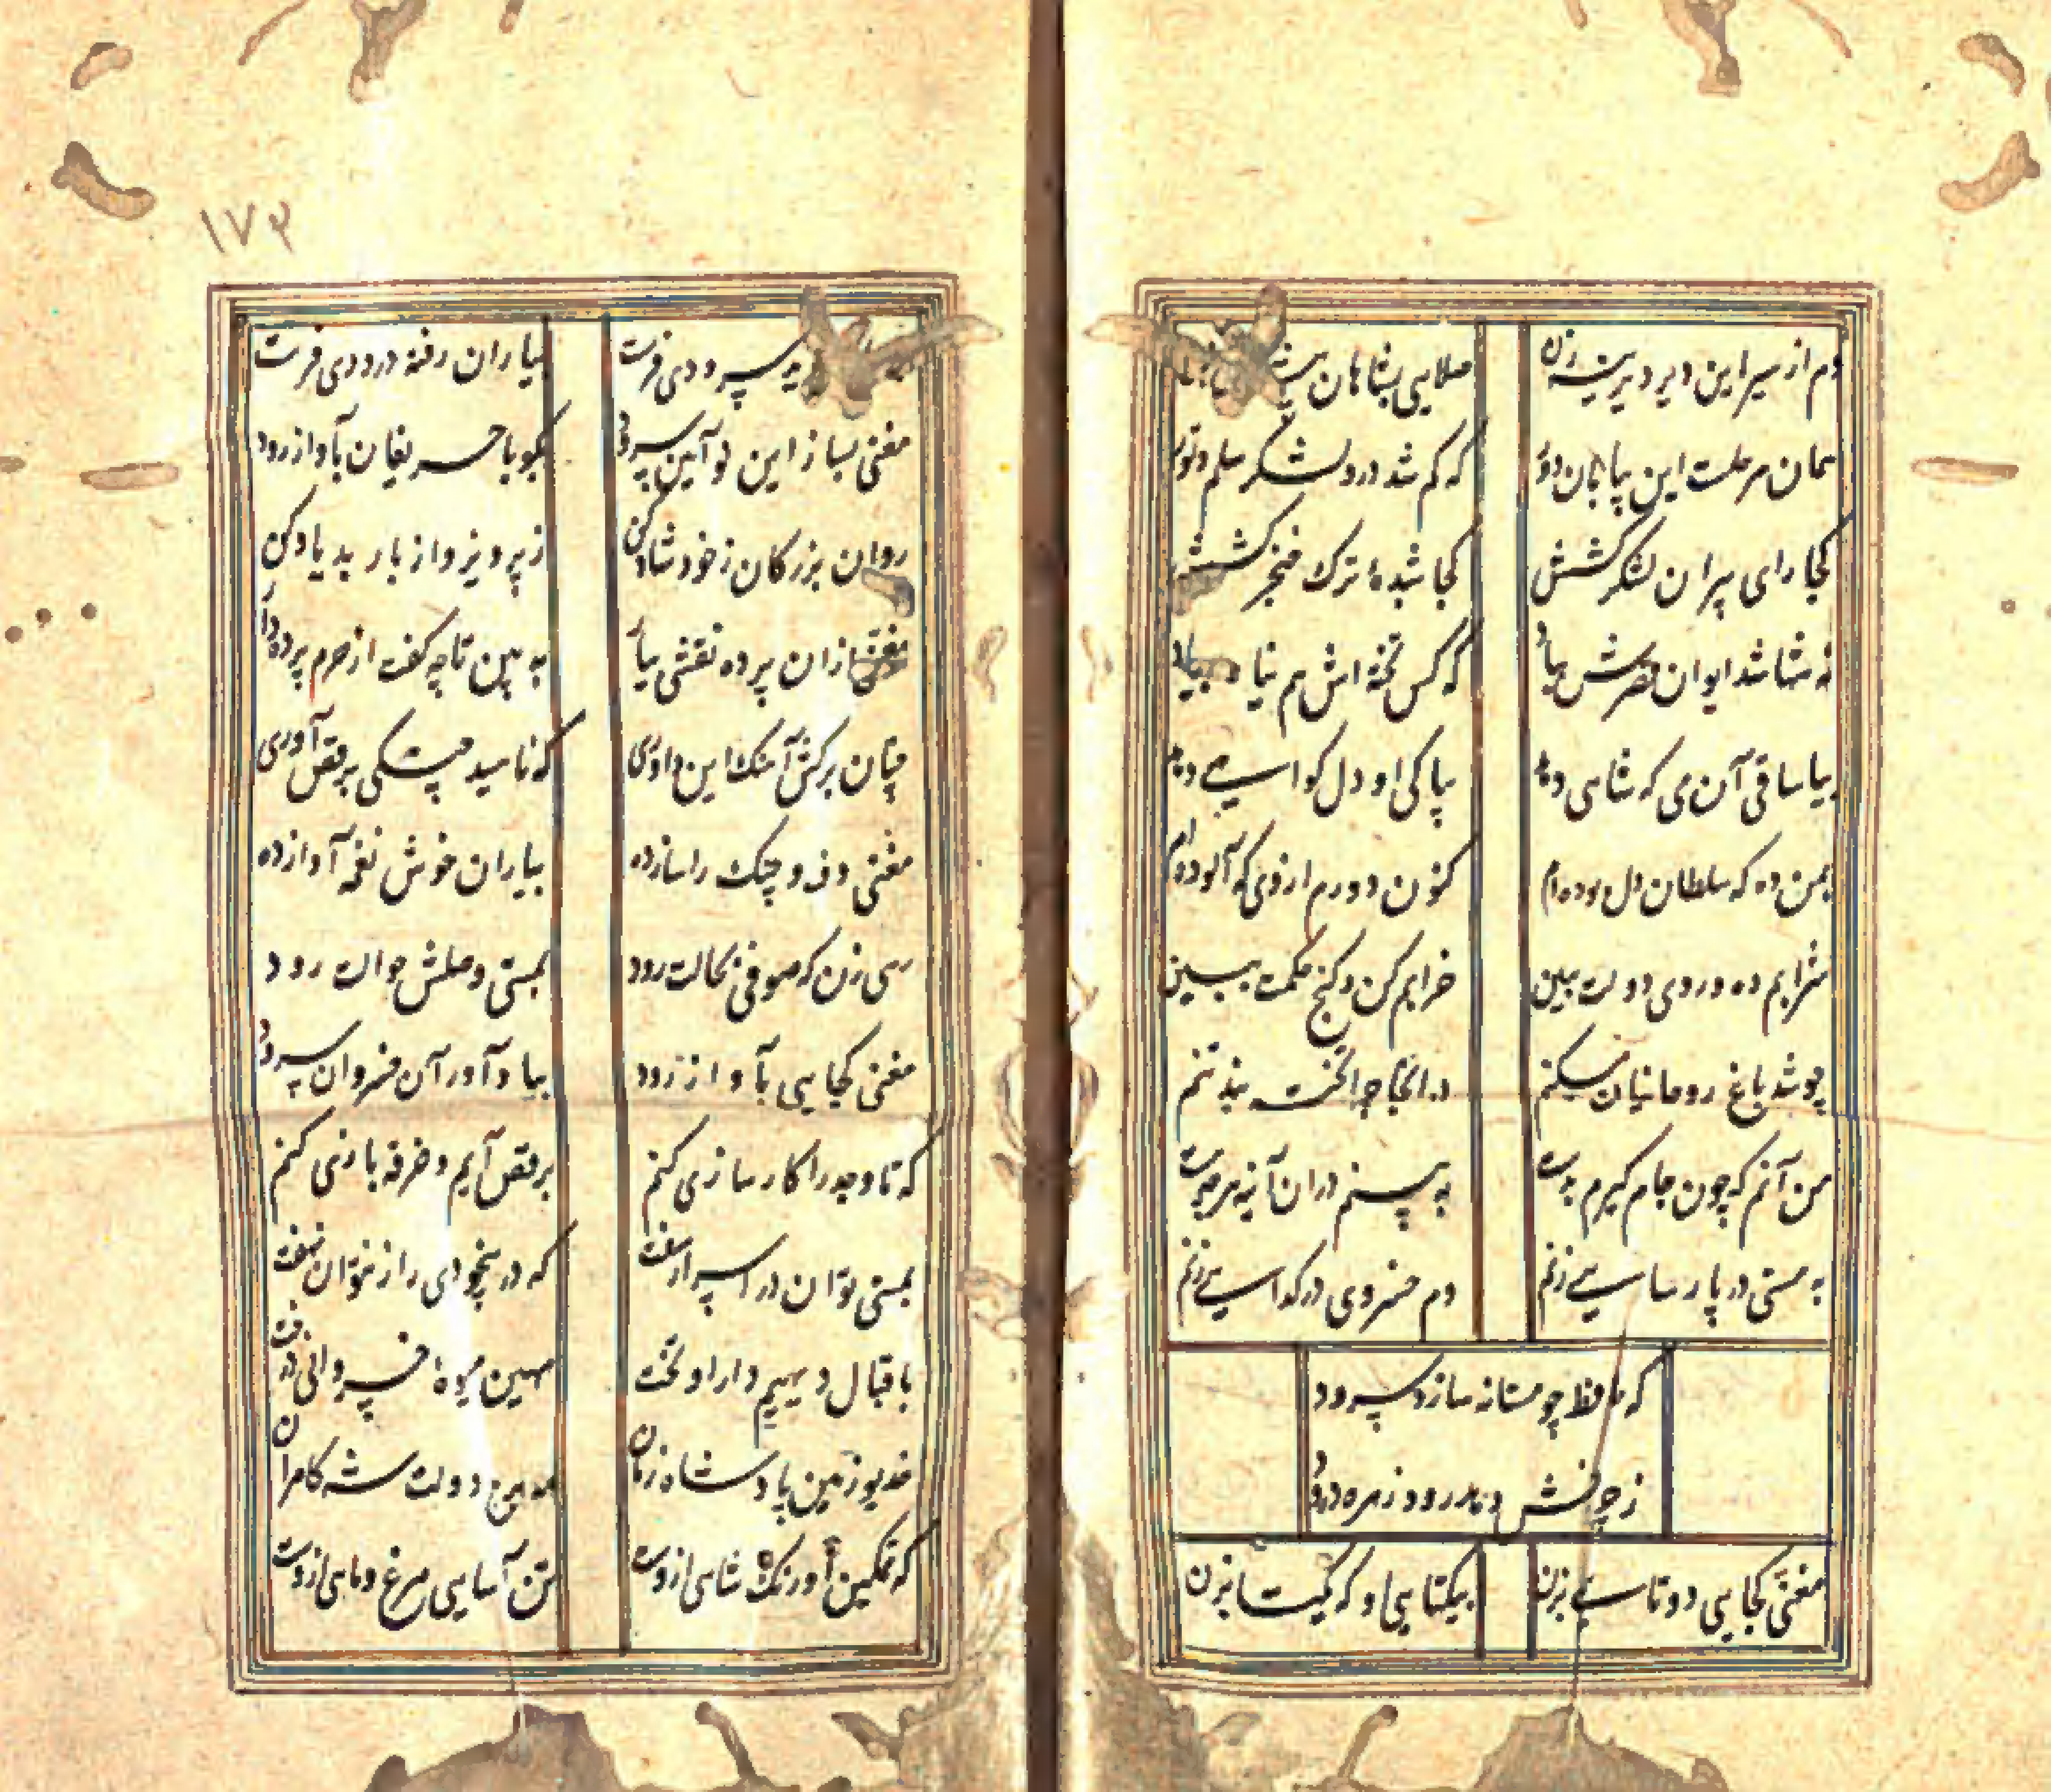 دم از سیر این دیر دیرینه زن صلایی بشاهان
همان مرحلست این بیابان دور که کم شد درو لشکر سلم و تور
کجا رای پیران لشکر کشش کجا شیده ترک خنجر کشش
نه تنها شد ایوان قصرش بباد که کس تخته اش هم نیا د بیاد
بیا ساقی آن می که شاهی دهد بپاکی او دل کواهی دهد
بمن ده که سلطان دل بوده ام کنون دورم ازوی که آلوده ام
شرابم ده و روی دولت ببین خرابم کن و کنج حکمت ببین
چو شد باغ روحانیان مسکنم در انجا چرا تخته بند تنم
من آنم که چون جام کیرم بدست به بینم دران آینه هرچه هست
به مستی در پارسایی زنم دم خسروی در کدایی زنم
که حافظ چو مستانه سازد سرود
ز چرخش دهد رود زهره درود
مغنی کجایی دوتایی بزن بیکتایی او که یکتا بزن
۱۷۳
سرودی فرست بیاران رفته درودی فرست
مغنی بساز این نو آیین سرود بکو با حریفان بآواز رود
روان بزرکان ز خود شاد کن ز پرویز و از باربد یاد کن
مغنی ازان پرده نقشی بیار به بین تا چه کفت از حرم پرده دار
چنان برکش آهنک این داوری که ناهید چنکی برقص آوری
مغنی دف و چنک را ساز ده بیاران خوش نغمه آواز ده
رهی زن که صوفی بحالت رود بمستی وصلش حوالت رود
مغنی کجایی بآواز رود بیاد آور آن خسروانی سرود
که تا وجد را کارسازی کنم برقص آیم و خرقه بازی کنم
بمستی توان در اسرار سفت که در بیخودی راز نتوان نهفت
باقبال دیهیم دارا و تخت بهین میوه خسروانی درخت
خدیو زمین پادشاه زمان مه برج دولت شه کامران
که تمکین اورنک شاهی ازوست تن آسایی مرغ و ماهی ازوست